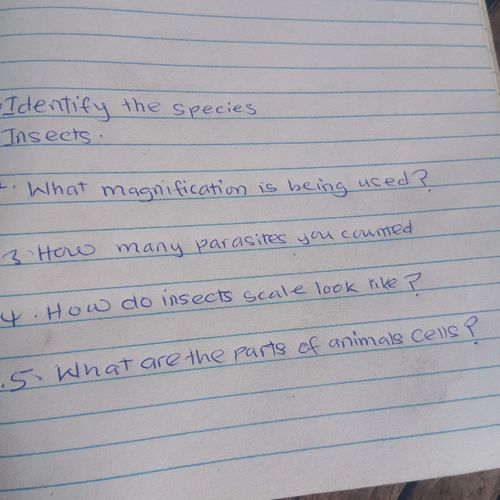 Identify the species
Insects.
2. What magnification is being used?
3. How many parasites you counted
4. How do insects scale look like?
5. What are the parts of animals cells?